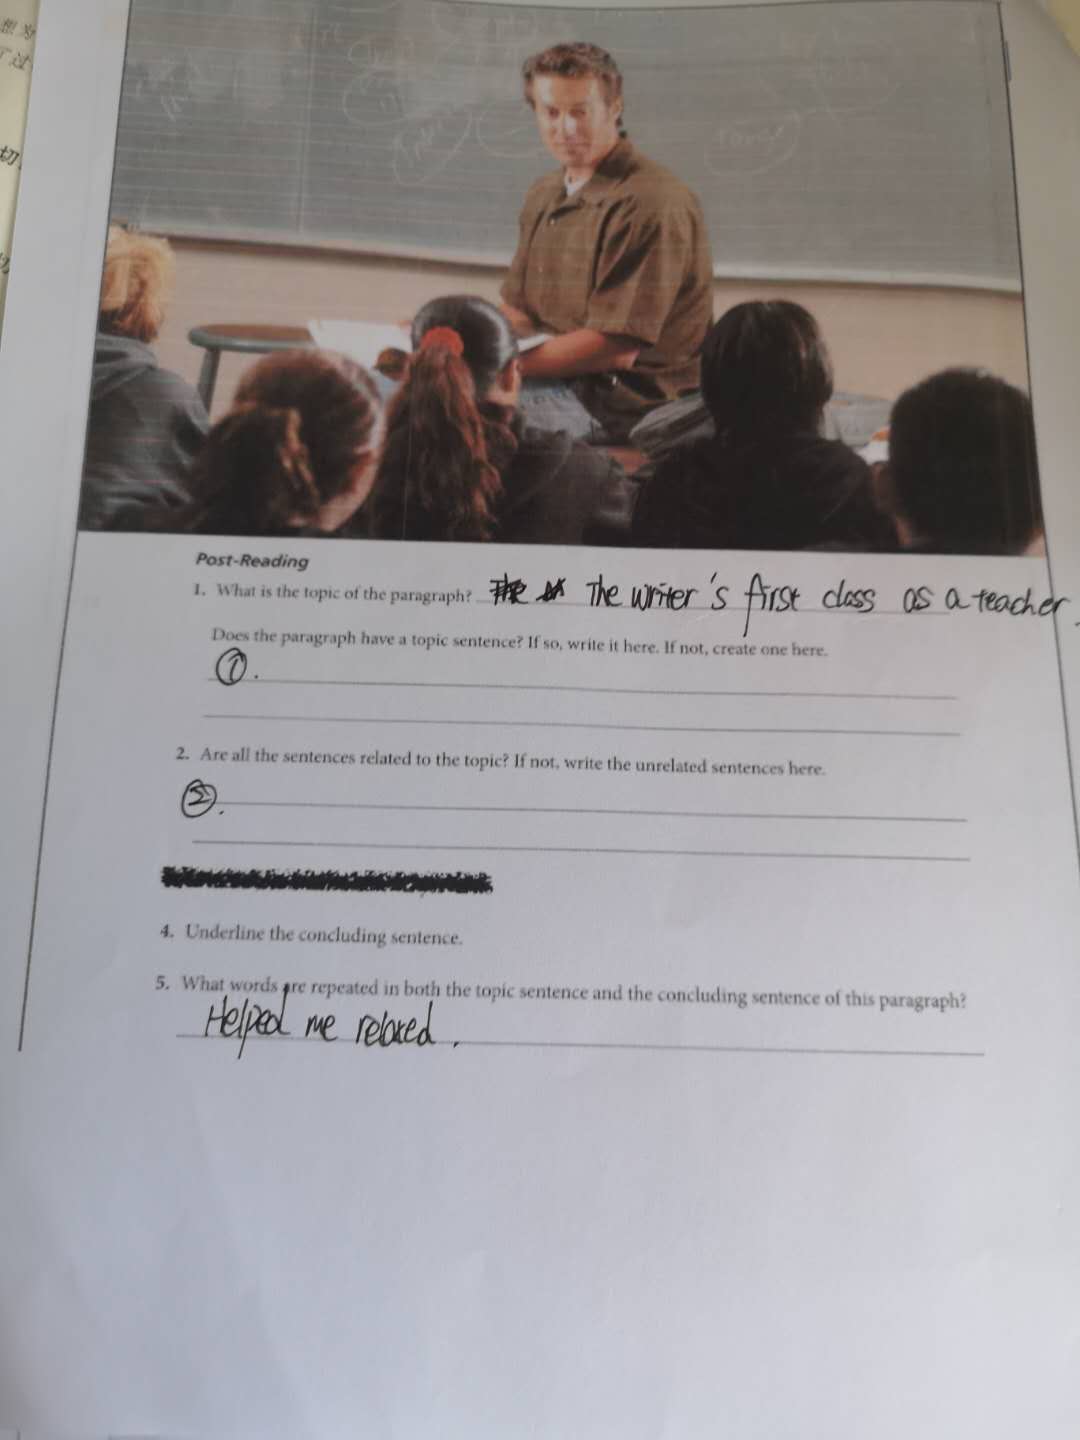 想为
了过
切
Post-Reading
1. What is the topic of the paragraph? The writer's first class as a teacher.
Does the paragraph have a topic sentence? If so, write it here. If not, create one here.
①.
2. Are all the sentences related to the topic? If not, write the unrelated sentences here.
②.
4. Underline the concluding sentence.
5. What words are repeated in both the topic sentence and the concluding sentence of this paragraph?
Helped me relaxed.